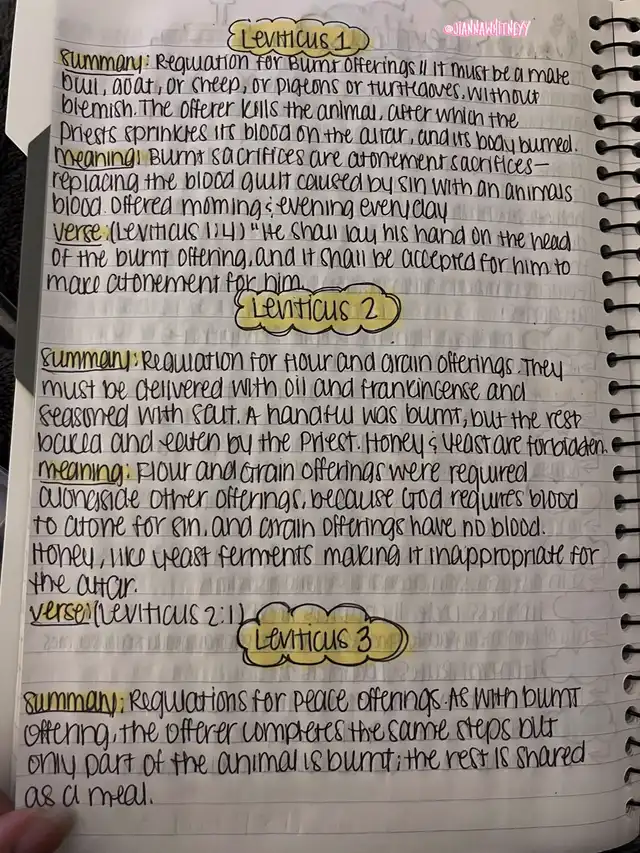 @JIANNAWHITNEYY
Leviticus 1
summary: Regulation for Burnt offerings // it must be a male
bull, goat, or sheep, or pigeons or turtledoves, without
blemish. The offerer kills the animal, after which the
Priests sprinkles its blood on the altar, and its body burned.
meaning: Burnt sacrifices are atonement sacrifices—
replacing the blood guilt caused by sin with an animals
blood. Offered morning & evening everyday
verse: (Leviticus 1:4) "He shall lay his hand on the head
of the burnt offering, and it shall be accepted for him to
make atonement for him
Leviticus 2
summary: Regulation for flour and grain offerings. They
must be delivered with oil and frankincense and
seasoned with salt. A handful was burnt, but the rest
baked and eaten by the Priest. Honey & yeast are forbidden.
meaning: Flour and Grain offerings were required
alongside other offerings, because God requires blood
to atone for sin, and grain offerings have no blood.
Honey, like yeast ferments making it inappropriate for
the altar.
verse: (Leviticus 2:1)
Leviticus 3
summary: Regulations for peace offerings. As with burnt
offering, the offerer completes the same steps but
only part of the animal is burnt; the rest is shared
as a meal.